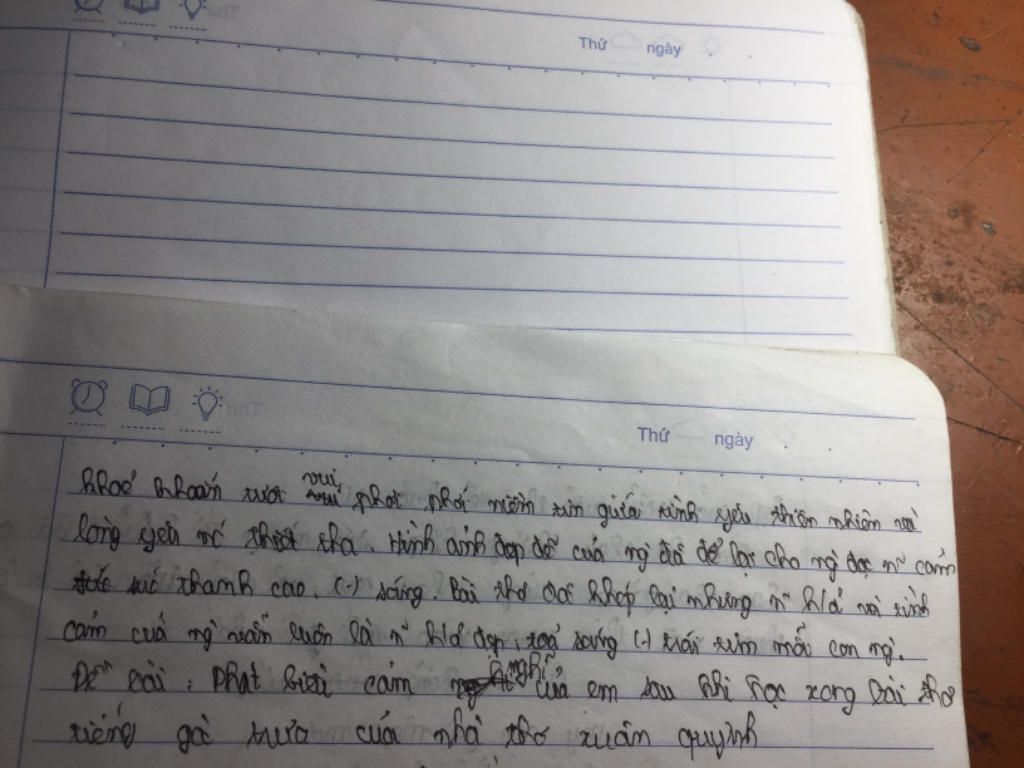 Thứ ngày
Thứ ngày
khoẻ khoắn tươi vui phơi phới niềm tin giữa tình yêu thiên nhiên và
lòng yêu nc thiết tha. Hình ảnh đẹp đẽ của ng đã để lại cho ng đọc n~ cảm
xúc thanh cao, (-) sáng. Bài thơ đã khép lại nhưng n~ h/a và tình
cảm của ng vẫn luôn là n~ h/a đẹp, toả sáng (-) trái tim mỗi con ng.
Đề bài: Phát biểu cảm nghĩ của em sau khi học xong bài thơ
tiếng gà trưa của nhà thơ xuân quỳnh